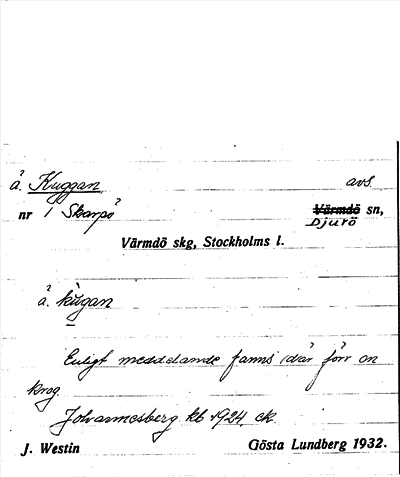 å. Kuggan avs.
nr 1 Skarpö Värmdö sn,
Djurö
Värmdö skg, Stockholms l.
å. kùgan
Enligt meddelande fanns där förr en
krog.
Johannesberg kb 1924 ek.
J. Westin Gösta Lundberg 1932.